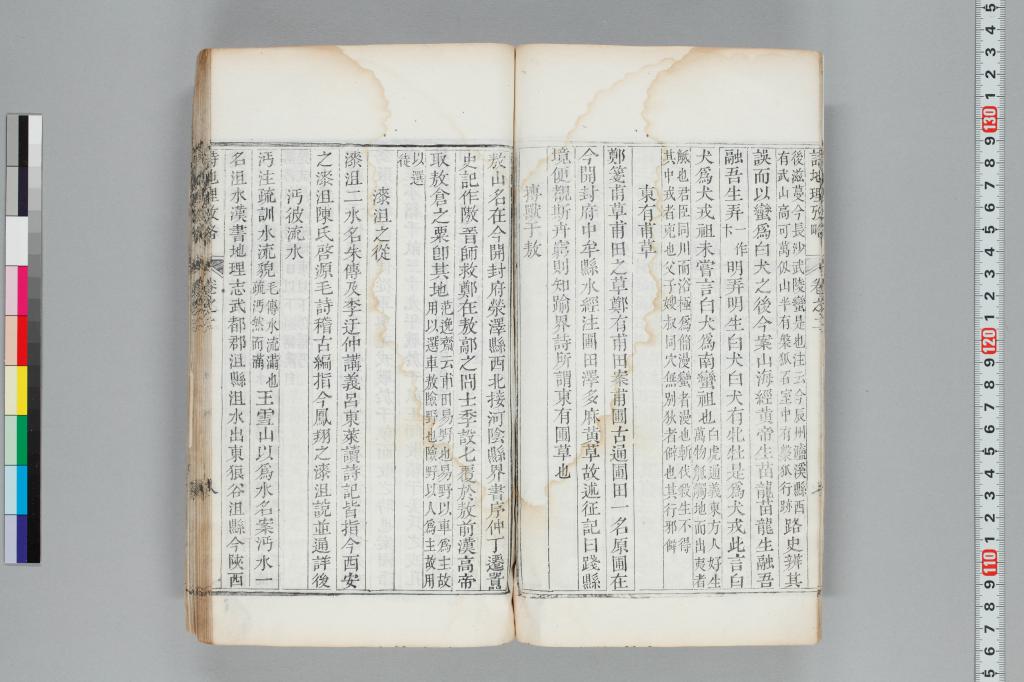 後滋蔓今長沙武陵蠻是也注云今辰州瀘溪縣西
有武山高可萬仞山半有槃瓠石室中有槃瓠行跡
路史辨其
誤而以蠻為白犬之後今案山海經黃帝生苗龍苗龍生融吾
融吾生弄
一作
卞
明弄明生白犬白犬有牝牡是為犬戎此言白
犬為犬戎祖未嘗言白犬為南蠻祖也
白虎通義東方人好生
萬物觝觸地而出夷者
觝也君臣同川而浴極為簡漫蠻者漫也斬伐殺生不得
其中戎者兇也父子嫂叔同穴無別狄者僻也其行邪僻
東有甫草
鄭箋甫草甫田之草鄭有甫田案甫圃古通圃田一名原圃在
今開封府中牟縣水經注圃田澤多麻黃草故述征記曰踐縣
境便覩斯卉窮則知踰界詩所謂東有圃草也
搏獸于敖
敖山名在今開封府滎澤縣西北接河陰縣界書序仲丁遷囂
史記作隞晉師救鄭在敖鄗之閒士季設七覆於敖前漢高帝
取敖倉之粟卽其地
范逸齋云甫田易野也易野以車為主故
用以選車敖險野也險野以人為主故用
以選
徒
漆沮之從
漆沮二水名朱傳及李迂仲講義呂東萊讀詩記皆指今西安
之漆沮陳氏啓源毛詩稽古編指今鳳翔之漆沮說並通詳後
沔彼流水
沔注疏訓水流貌
毛傳水流滿也
疏沔然而滿
王雪山以為水名案沔水一
名沮水漢書地理志武都郡沮縣沮水出東狼谷沮縣今陝西